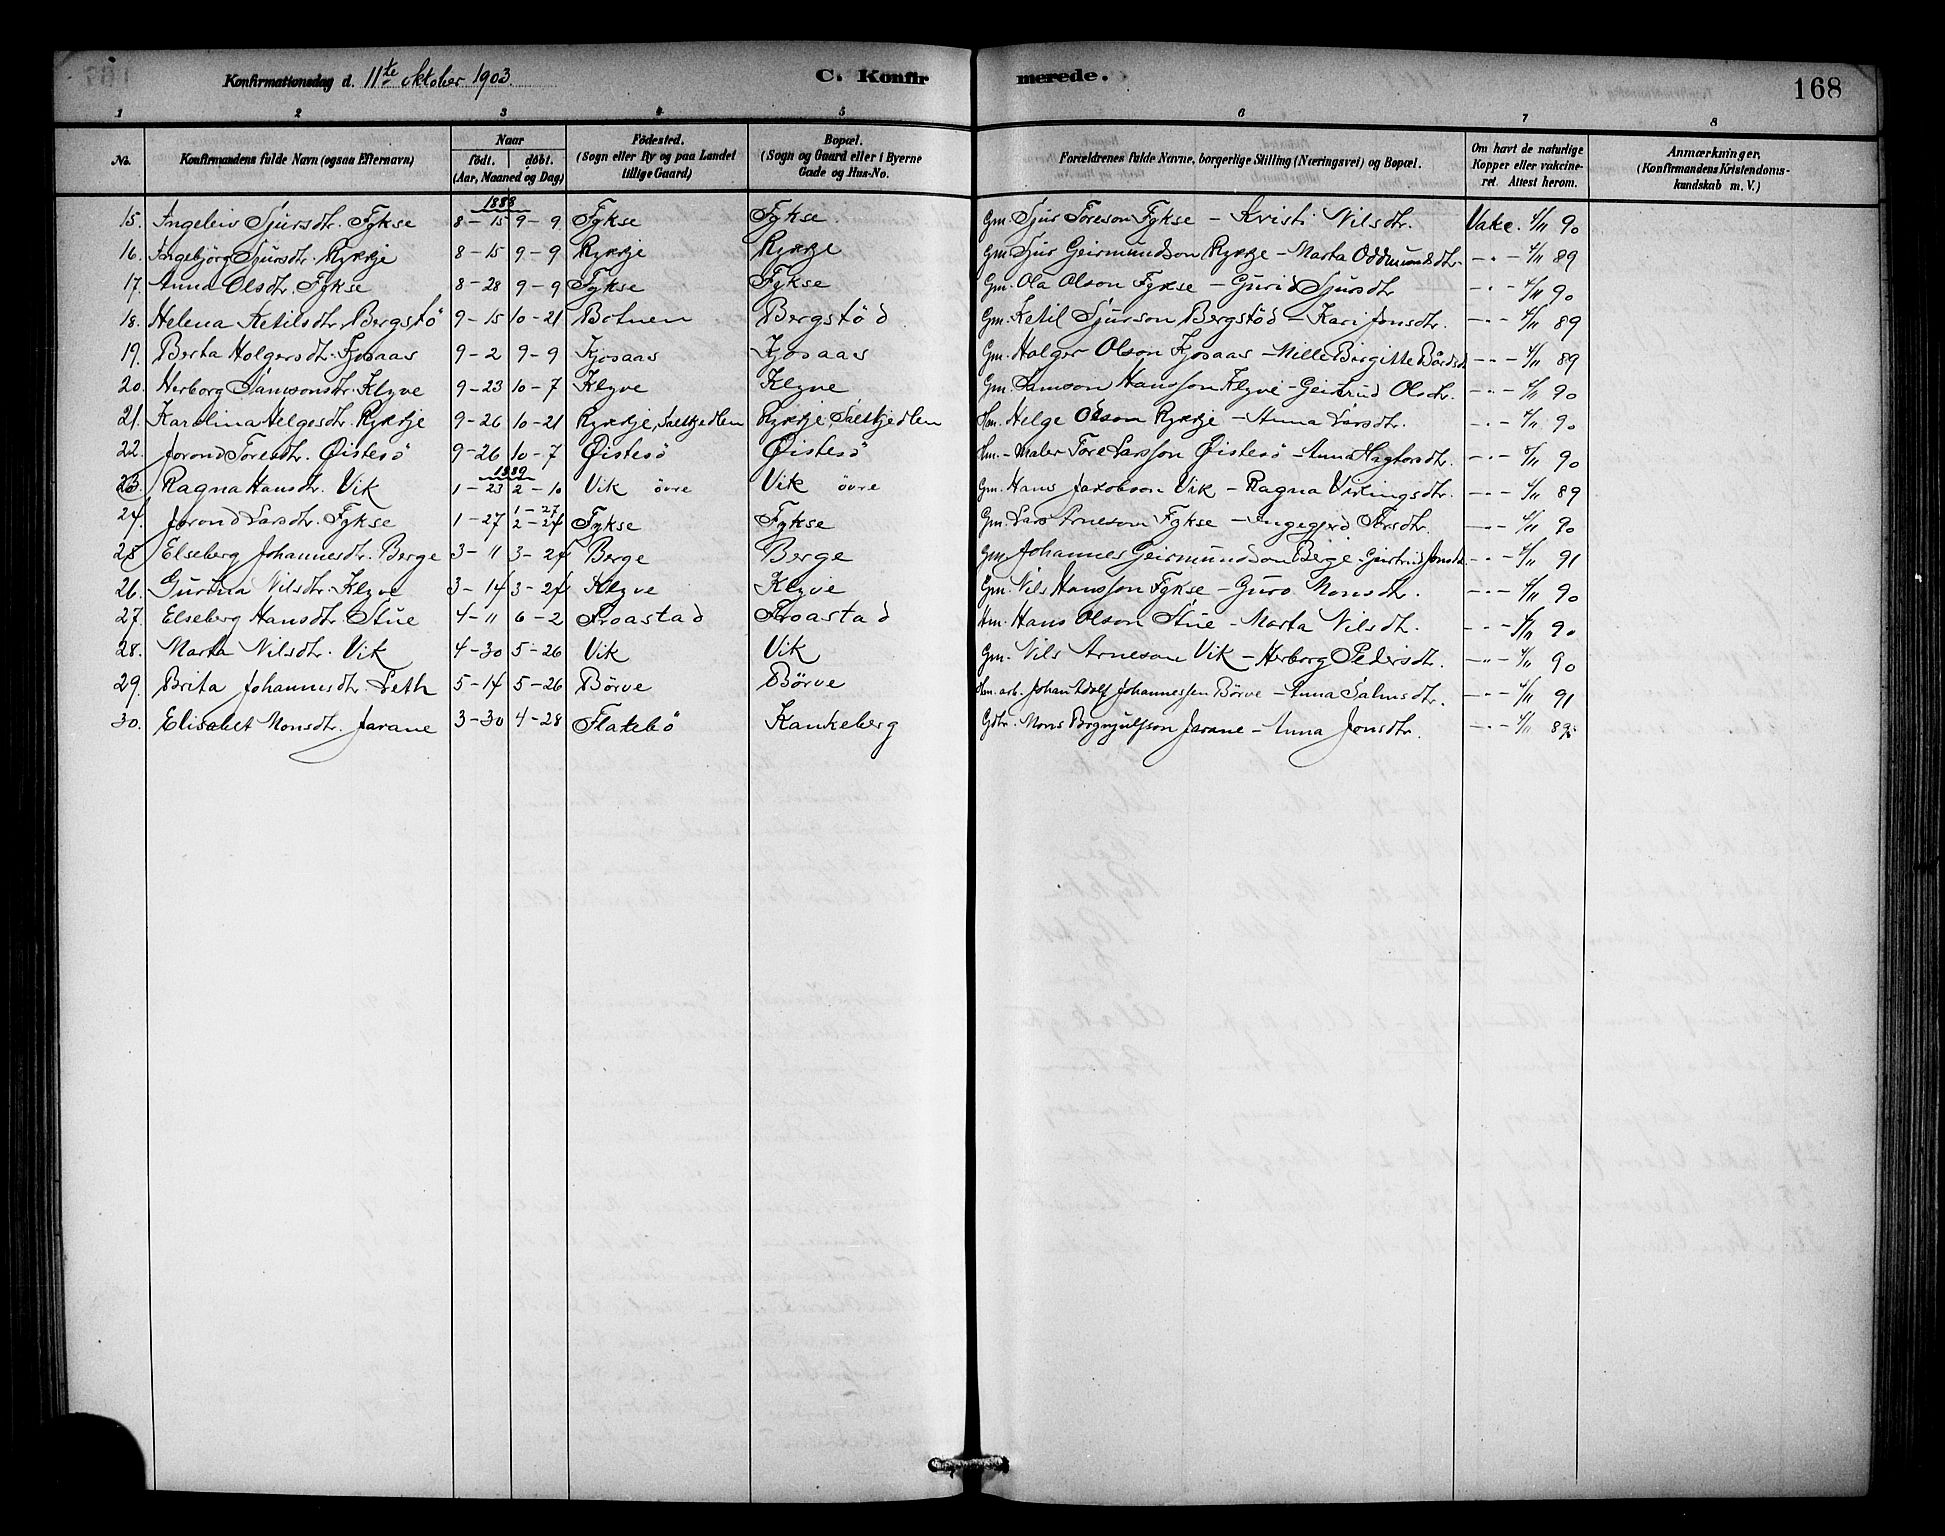 Konfirmationsdag d. 11te oktober 1903.
C. Konfirmerede.
168
1 2 3 4 5 6 7 8
No. Konfirmandens fulde Navn (ogsaa Efternavn) Naar født. døbt. (Aar, Maaned og Dag) Fødested. (Sogn eller By og paa Landet tillige Gaard) Bopæl. (Sogn og Gaard eller i Byerne Gade og Hus-No. Forældrenes fulde Navne, borgerlige Stilling (Næringsvei) og Bopæl. Om havt de naturlige Kopper eller vakcineret. Attest herom. Anmærkninger. (Konfirmandens Kristendomskundskab m. V.)
1888
15. Ingeleiv Sjursdtr. Fykse 8-15 9-9 Fykse Fykse. Gm. Sjur Toreson Fykse - Kristi Nilsdtr. Vakc. 4/11 90
16. Ingebjörg Sjursdtr. Rykkje 8-15 9-9 Rykkje Rykkje Gm. Sjur Geirmundson Rykkje - Marta Oddmundsdtr. -"- 4/11 89
17. Anna Olsdtr. Fykse 8-28 9-9 Fykse Fykse Gm. Ola Olson Fykse - Gurid Sjursdtr -"- 4/11 90
18. Helena Ketilsdtr. Bergstö 9-15 10-21 Botnen Bergstöd Gm. Ketil Sjurson Bergstöd - Kari Jonsdtr. -"- 4/11 89
19. Berta Holgersdtr. Kjosaas 9-2 9-9 Kjosaas Kjosaas Gm. Holger Olson Kjosaas - Mille Birgitte Bårdsd -"- 4/11 89
20. Herborg Samsonsdtr. Klyve 9-23 10-7 Klyve Klyve Gm. Samson Hansson Klyve - Geirtrud Olsdtr. -"- 4/11 90
21. Karolina Helgesdtr. Rykkje 9-26 10-21 Rykkje, Rykkje Hm. Helge Olson Rykkje - Anna Larsdtr. -"- 4/11 90
22. Jorond Toresdtr. Øistesö 9-26 10-7 Øistesö Øistesö Hm. - Maler Tore Larsson Øistesö - Anna Hagtorsdtr. -"- 4/11 90
1889
23. Ragna Hansdtr. Vik 1-23 2-10 Vik övre Vik övre Gm. Hans Jakobson Vik - Ragna Vikingsdtr. -"- 4/11 89
24. Jorond Larsdtr. Fykse 1-27 1-27 2-24 Fykse Fykse Gm. Lars Arneson Fykse - Ingegjerd -"- 4/11 90
25 Elseberg Johannesdtr. Berge 3-11 3-24 Berge Berge Gm. Johannes Geirmundson Berge - Geirtrud Jonsdtr -"- 4/11 91
26. Gurina Nilsdtr. Klyve 3-14 3-24 Klyve Klyve Gm. Nils Hansson Fykse - Guro Monsdtr. -"- 4/11 90
27. Elseberg Hansdtr. Stue 4-11 6-2 Froastad Froastad Hm. Hans Olson Stue - Marta Nilsdtr. -"- 4/11 90
28. Marta Nilsdtr. Vik 4-30 5-26 Vik Vik Gm. Nils Arneson Vik - Herborg Pedersdtr. -"- 4/11 90
29. Brita Johannesdtr. Leth 5-14 5-26 Börve Börve Hm. arb. Johan Adolf Johannessen Börve - Anna Salmsdtr. -"- 4/11 91
30. Elisabet Monsdtr. Jarane 3-30 4-28 Flatebö Kankeberg Gdbr. Mons Brynjulfson Jarane - Anna Jonsdtr. -"- 4/11